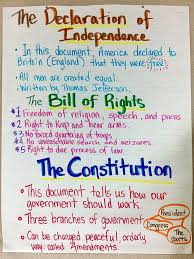 The Declaration of
Independence
• In this document, America declared to
Britain (England) that they were free.
• All men are created equal.
• Written by Thomas Jefferson.
The Bill of Rights
#1 Freedom of religion, speech, and press
#2 Right to keep and bear arms
#3 No forced quartering of troops
#4 No unreasonable search and seizures.
#5 Right to due process of law
The Constitution
• This document tells us how our
government should work.
• Three branches of government
President
Congress
The Courts
• Can be changed peaceful, orderly
way called Amendments.